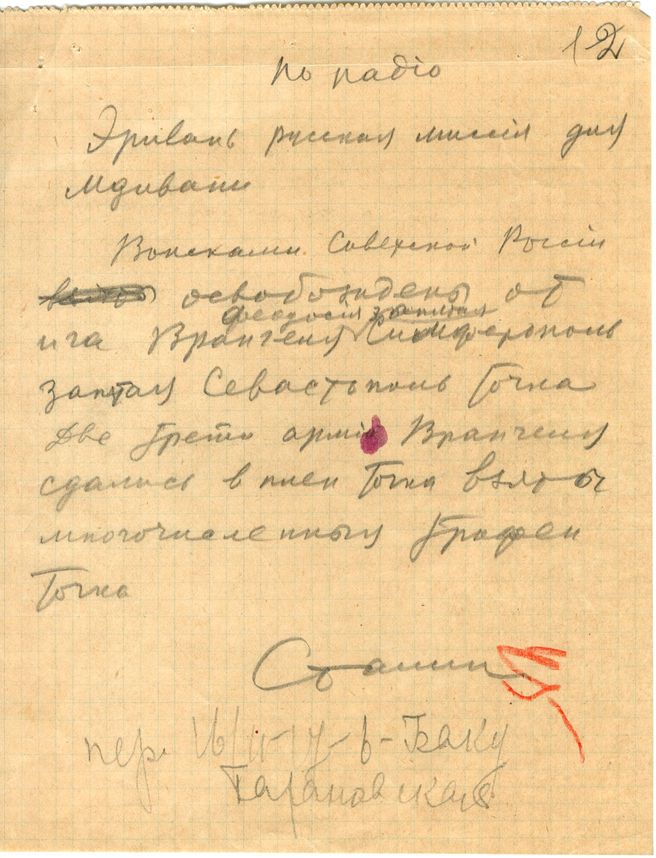 12
по радіо
Эривань русская миссія для
Мдивани
Войсками Советской Россіи
освобождены от
Феодосия запятая
ига Врангеля Симферополь
заптая Севастополь Точка
Две трети арміи Врангеля
сдались в плен Точка взяты
многочисленныя трофеи
Точка
Сталин
пер. 16/11 в Баку
Тарановская